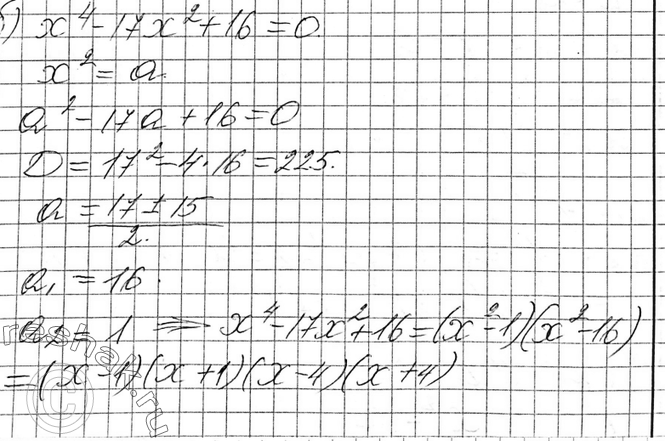 б) x⁴-17x²+16=0
x²=a.
a²-17a+16=0
D=17²-4·16=225.
a=17±15
2.
a₁=16.
a₂=1 ⇒ x⁴-17x²+16=(x²-1)(x²-16)
=(x-1)(x+1)(x-4)(x+4)
reshak.ru